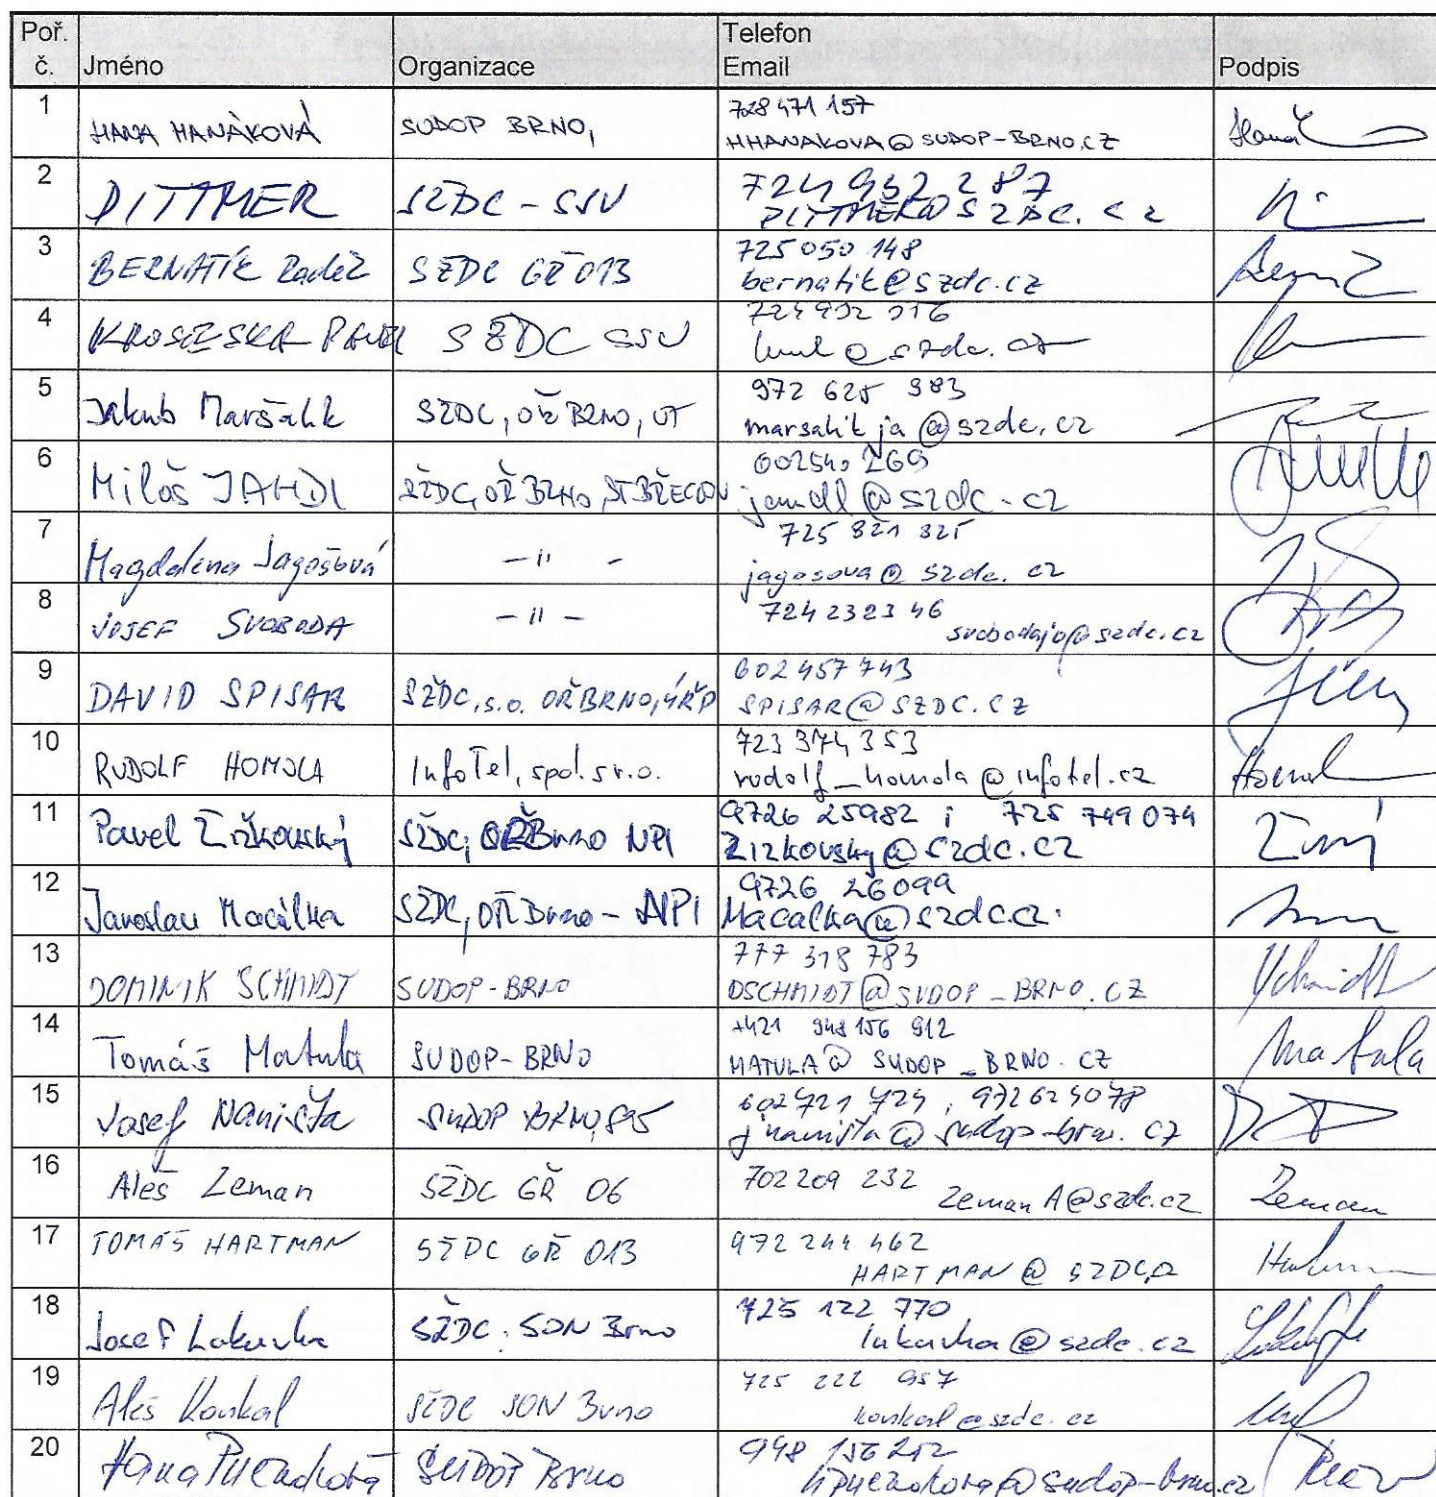 Poř. č. Jméno Organizace Telefon Email Podpis
1 HANA HANÁKOVÁ SUDOP BRNO, 728 471 157
HHANAKOVA@SUDOP-BRNO.CZ
2 DITTMER SŽDC - SSV 724 932 287
DITTMER@SZDC.CZ
3 BERNATÍK Radek SŽDC GŘ 013 725 050 148
bernatik@szdc.cz
4 PAVEL SŽDC SSV
5 Jakub Maršálik SŽDC, OŘ BRNO, ÚT 972 625 383
marsalikja@szdc.cz
6 Miloš JANDL SŽDC, OŘ BRNO, ST BŘECLAV 602540 269
jandl@szdc.cz
7 Magdalena Jagošová -"- 725 821 325
jagosova@szdc.cz
8 JOSEF SVOBODA -"- 724 2323 46
svobodajo@szdc.cz
9 DAVID SPISAR SŽDC, s.o. OŘ BRNO, ÚŘP 602 457 743
SPISAR@SZDC.CZ
10 RUDOLF HOMOLA InfoTel, spol. s r.o. 723 374 353
rudolf_homola@infotel.cz
11 Pavel Žižkovský SŽDC, OŘ Brno NPI 9726 25982 ; 725 749 074
Zizkovsky@szdc.cz
12 Jaroslav Macálka SŽDC, OŘ Brno - NPI 9726 26099
Macalka@szdc.cz
13 DOMINIK SCHMIDT SUDOP-BRNO 777 318 783
DSCHMIDT@SUDOP_BRNO.CZ Schmidt
14 Tomáš Matula SUDOP-BRNO +421 948 156 912
MATULA@SUDOP_BRNO.CZ Matula
15 Josef Naništa SUDOP BRNO, 602 721 724, 972624078
jnanista@sudop-brno.cz
16 Aleš Zeman SŽDC GŘ 06 702 209 232
ZemanA@szdc.cz Zeman
17 TOMÁŠ HARTMAN SŽDC GŘ 013 972 244 462
HARTMAN@SZDC.CZ
18 Josef Lukavka SŽDC, SON Brno 725 122 770
lukavka@szdc.cz
19 Aleš Koukal SŽDC SON Brno 725 222 957
koukal@szdc.cz
20 Hana SUDOP Brno 948 156 212